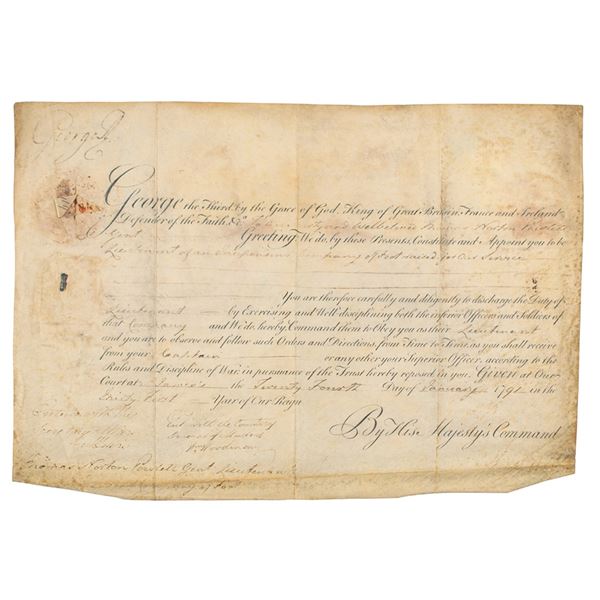 George R.
George the Third, by the Grace of God, King of Great Britain, France and Ireland,
Defender of the Faith, &c. To Our Trusty and Welbeloved Thomas Norton Powlett
Gent. Greeting, We do, by these Presents, Constitute and Appoint you to be
Lieutenant of an Independent Company of Foot raised for Our Service
You are therefore carefully and diligently to discharge the Duty of
Lieutenant by Exercising and Well-disciplining both the inferior Officers and Soldiers of
that Company and We do hereby Command them to Obey you as their Lieutenant
and you are to observe and follow such Orders and Directions, from Time to Time, as you shall receive
from your Captain or any other your Superior Officer, according to the
Rules and Discipline of War, in pursuance of the Trust hereby reposed in you. GIVEN at Our
Court at St. James's the Twenty Fourth Day of January 1791 in the
Thirty First Year of Our Reign
By His Majesty's Command
Entd. with the
Ent. with the Comry.
General of Musters
Thomas Norton Powlett Gent. Lieutenant
Company of Foot